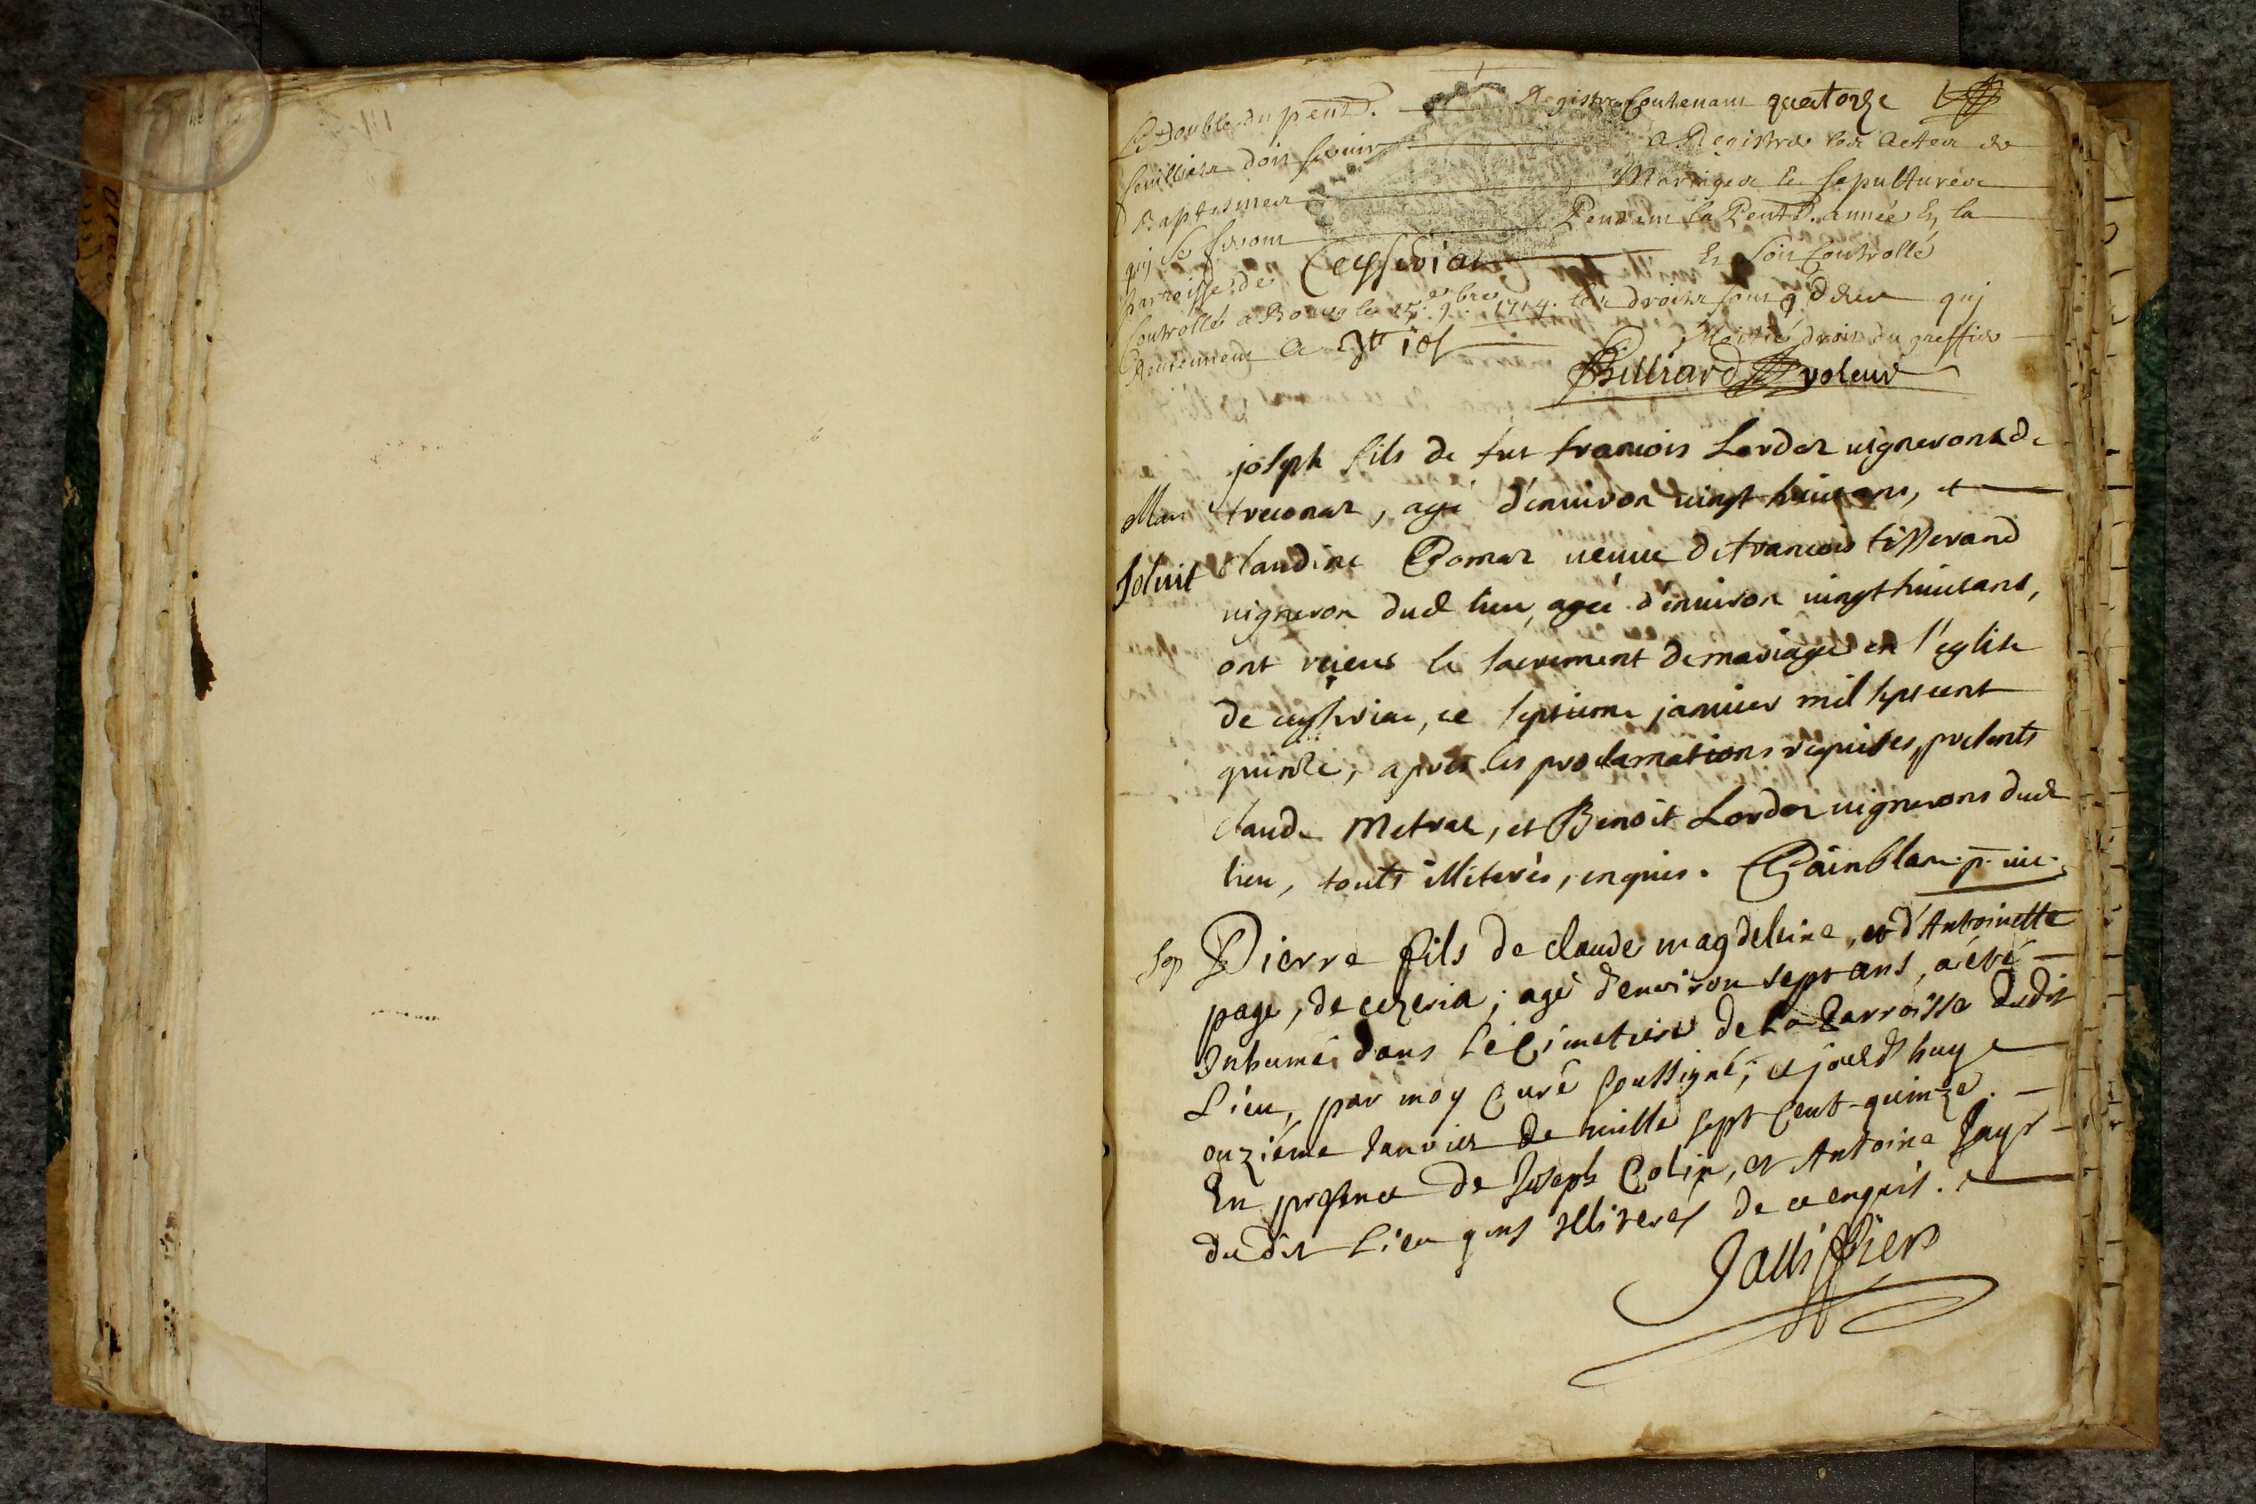 Le double du pent. Registre Contenant quatorze
feuillets doit servir a Registrer les actes de
Baptesmes Mariages Et sepultures
qui se feront Pendant la Pente. année En la
Parroisse de Ceyseriat Et soit Controllé
Controllé a Bourg le 9bre 1714. les droits sont
Reviennent a Moitié droit du greffier
Billiard voleur
joseph fils de fut francois Lordor vigneron de
Mar treconas, agé d'environ vingt huit ans, et
Solvit Claudine Gomar veuve de francois tisserand
vigneron dud lieu, agée d'environ vingt huit ans,
ont receus le sacrement de mariage en l'eglise
de ceyseriat, ce septieme janvier mil sept cent
quinze, apres les proclamations requises, presents
claude Metral, et Benoit Lordor vignerons dud
lieu, touts illiterés, enquis. Gainblan p. vic.
Sep Pierre fils de claude magdeleine, et d'Antoinette
page, de cezeria, agé d'environ sept ans, a été
Inhumé dans le Cimetiere de La Parroisse dudit
Lieu, par moy Curé soussigné, ce jourd'huy
onziéme Janvier de mille sept Cent quinze.
En presence de Joseph Colin, et Antoine Jayr
du dit Lieu gens illiterés de ce enquis.
Jalliffier